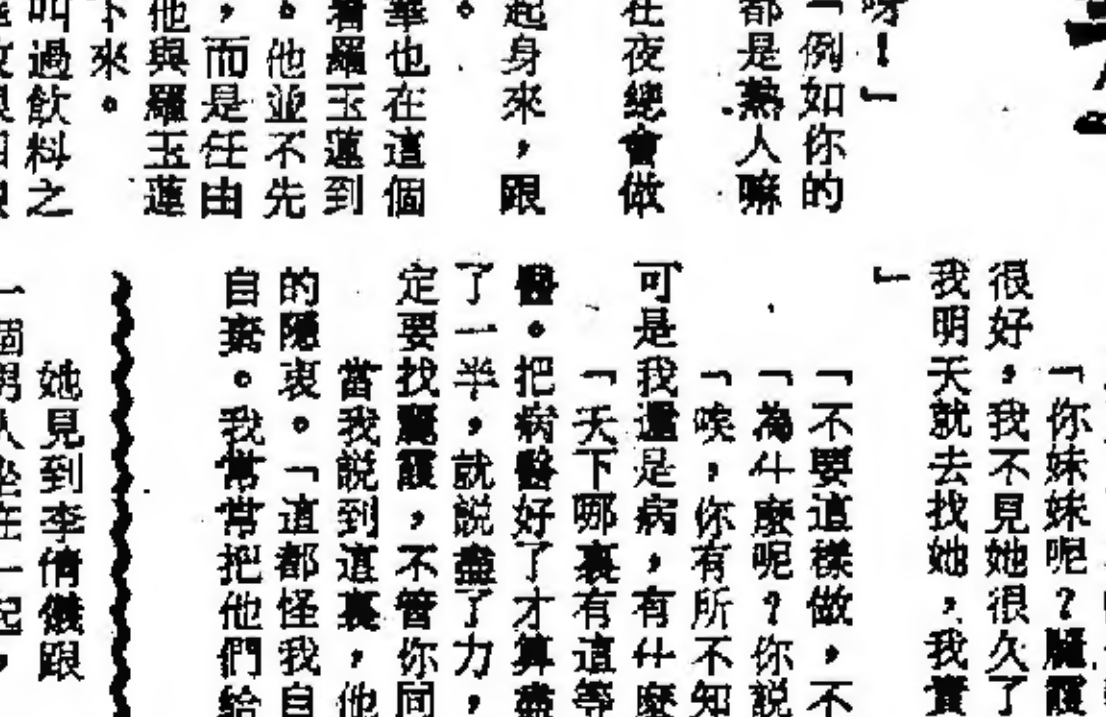 呀！」
「例如你的
都是熟人嘛
在夜總會做
起身來，跟
。
華也在這個
着羅玉蓮到
。他並不先
，而是任由
他與羅玉蓮
下來。
叫過飲料之
「你妹妹呢？麗霞
很好，我不見她很久了
我明天就去找她，我責
」
「不要這樣做，不
「為什麼呢？你説
「唉，你有所不知
可是我還是病，有什麼
「天下哪裏有這等
醫。把病醫好了才算盡
了一半，就説盡了力，
定要找麗霞，不管你同
當我説到這裏，他
的隱衷。「這都怪我自
自棄。我常常把他們給
她見到李倩儀跟
一個男人坐在一起，